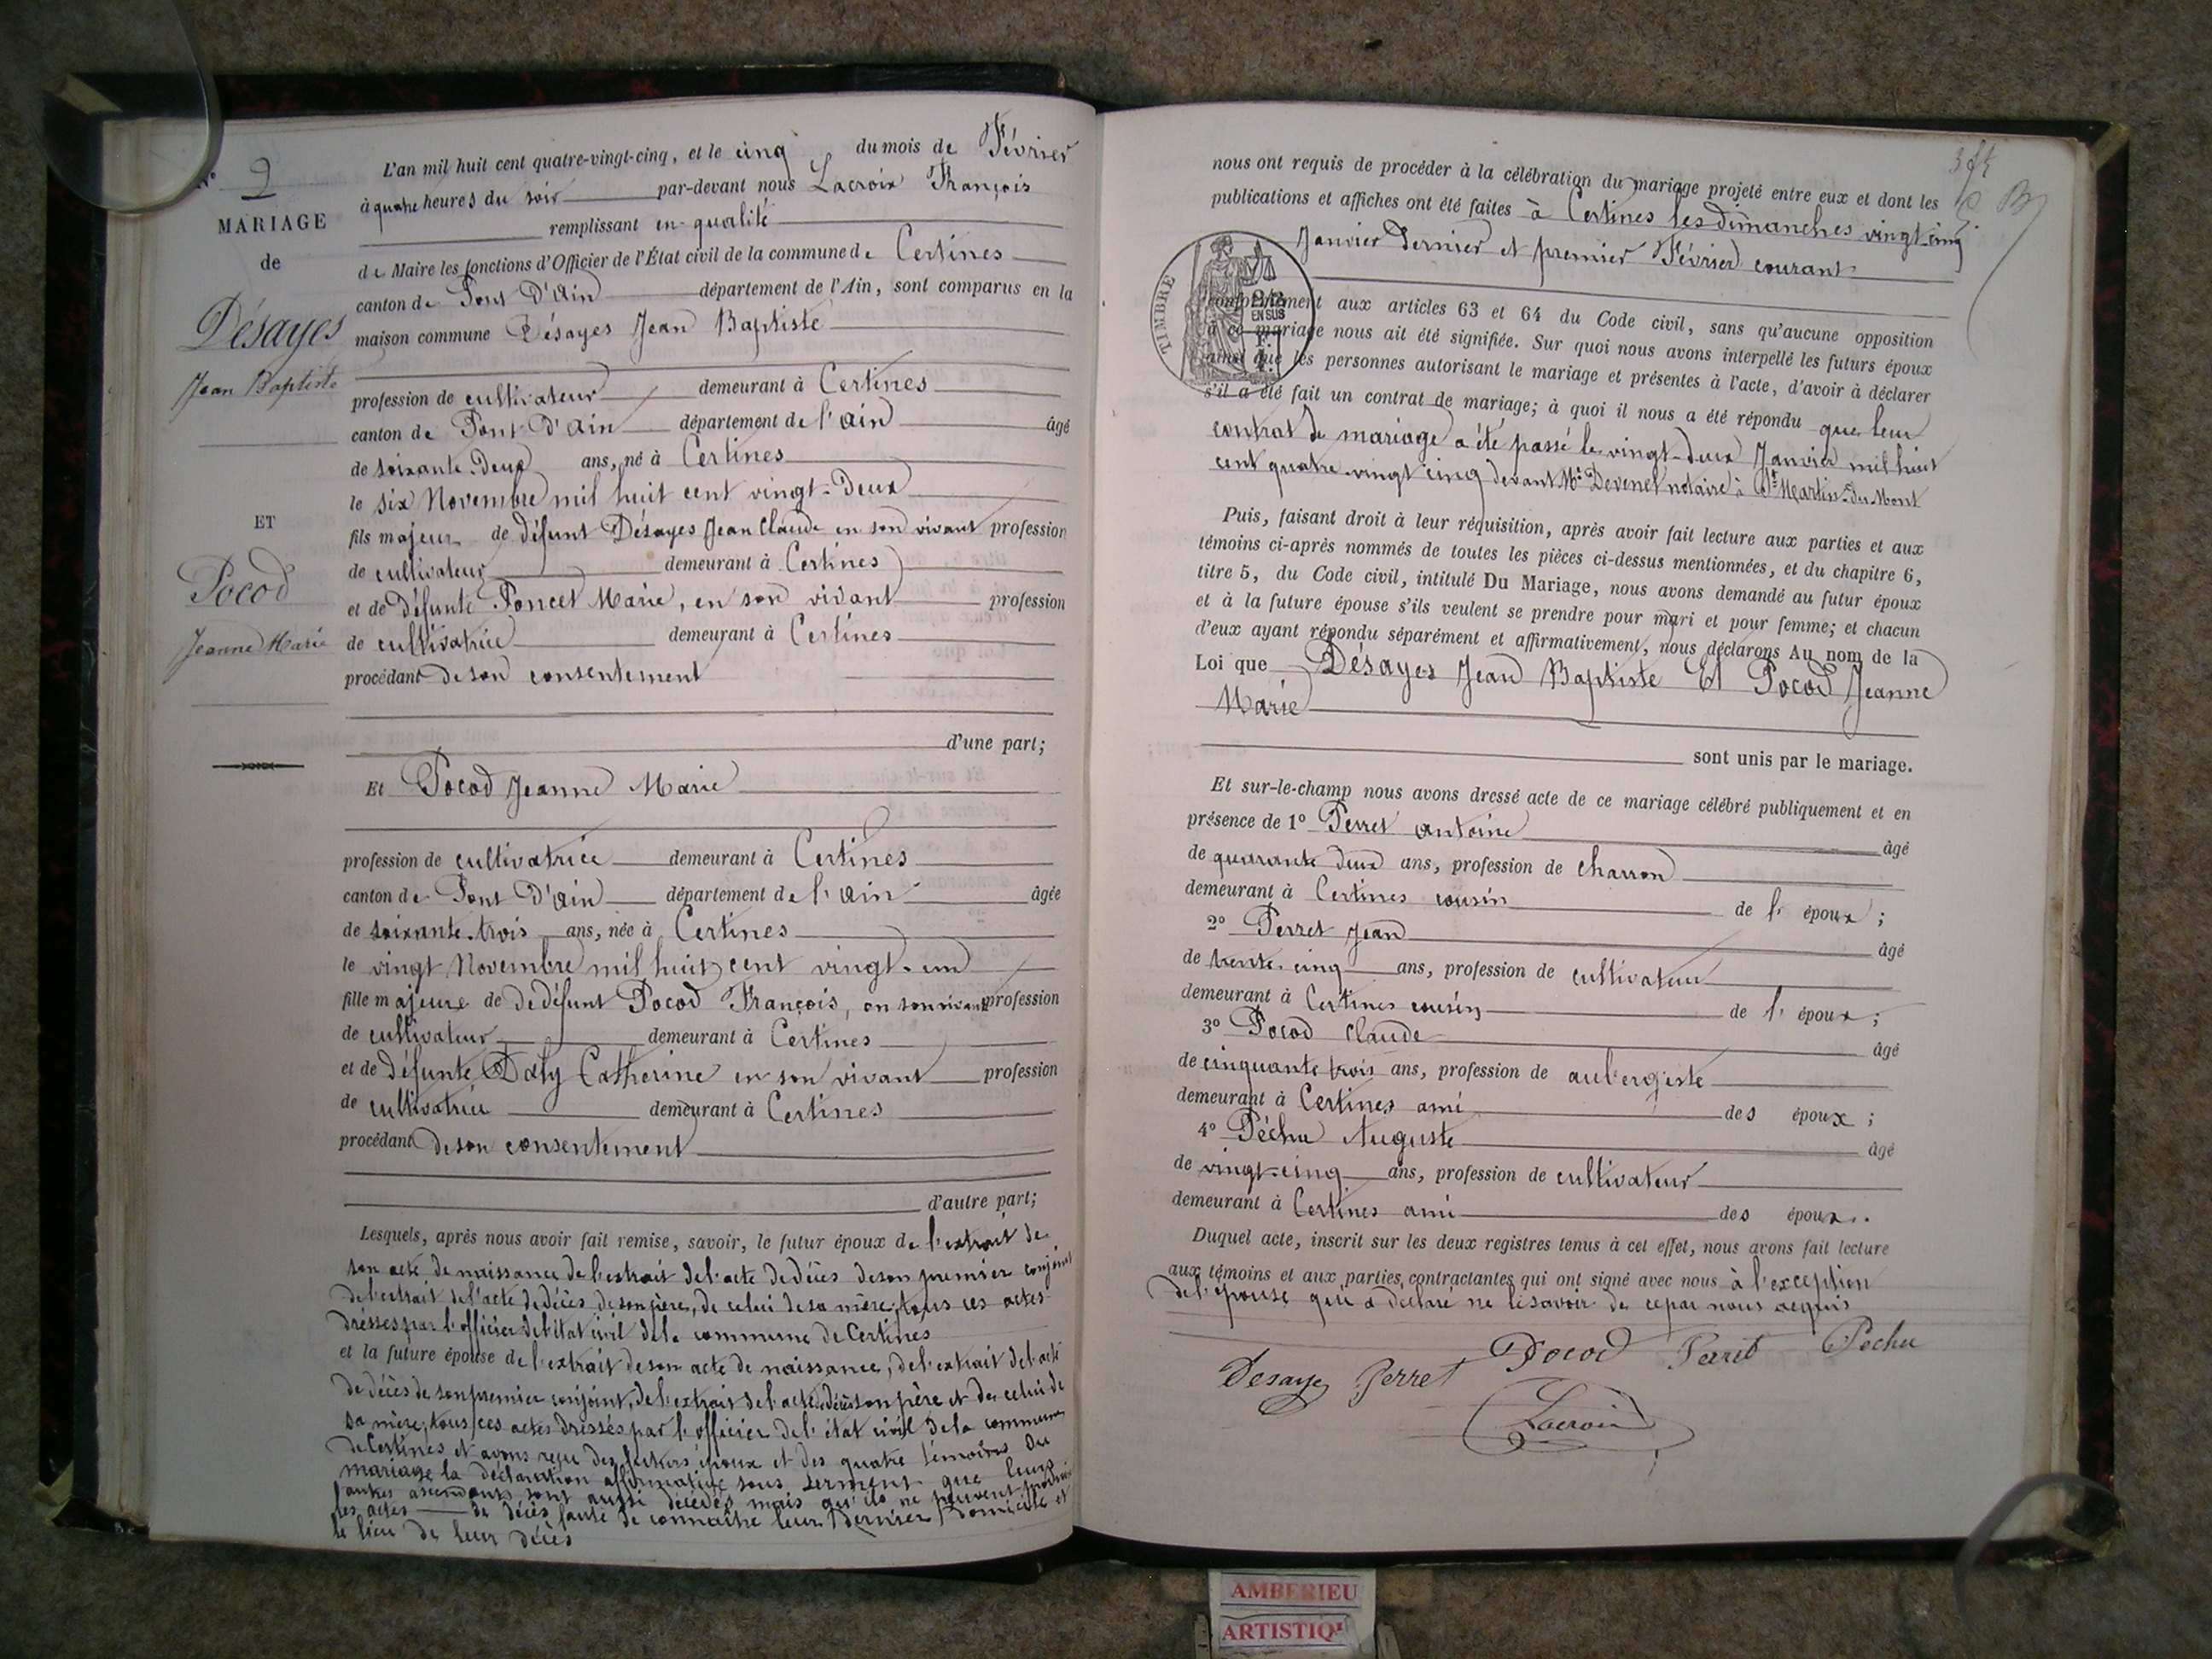 N° 2
MARIAGE
de
Désayes
Jean Baptiste
ET
Pocod
Jeanne Marie
L'an mil huit cent quatre-vingt-cinq, et le cinq du mois de Février
à quatre heures du soir par-devant nous Lacroix François
remplissant en qualité
de Maire les fonctions d'Officier de l'État civil de la commune de Certines
canton de Pont D'Ain département de l'Ain, sont comparus en la
maison commune Désayes Jean Baptiste
profession de cultivateur demeurant à Certines
canton de Pont D'Ain département de l'Ain âgé
de soixante-Deux ans, né à Certines
le six Novembre mil huit cent vingt-Deux
fils majeur de défunt Désayes Jean Claude en son vivant profession
de cultivateur demeurant à Certines
et de Défunte Poncet Marie, en son vivant profession
de cultivatrice demeurant à Certines
procédant de son consentement
d'une part;
Et Pocod Jeanne Marie
profession de cultivatrice demeurant à Certines
canton de Pont D'Ain département de l'Ain âgée
de soixante-trois ans, née à Certines
le vingt Novembre mil huit cent vingt-un
fille majeure de de défunt Pocod François, en son vivant profession
de cultivateur demeurant à Certines
et de défunte Daty Catherine en son vivant profession
de cultivatrice demeurant à Certines
procédant de son consentement
d'autre part;
Lesquels, après nous avoir fait remise, savoir, le futur époux de l'extrait de
son acte de naissance de l'extrait de l'acte de décès de son premier conjoint
de l'extrait de l'acte de décès de son père, de celui de sa mère; tous ces actes
dressés par l'officier de l'état civil de la commune de Certines
et la future épouse de l'extrait de son acte de naissance, de l'extrait de l'acte
de décès de son premier conjoint, de l'extrait de l'acte de décès son père et de celui de
sa mère; tous ces actes dressés par l'officier de l'état civil de la commune
de Certines et avons reçu des futurs époux et des quatre témoins du
mariage la déclaration affirmative sous serment que leurs
autres ascendants sont aussi décédés mais qu'ils ne peuvent produire
les actes de décès faute de connaître leur dernier domicile et
le lieu de leur décès
nous ont requis de procéder à la célébration du mariage projeté entre eux et dont les
publications et affiches ont été faites à Certines les dimanches vingt cinq
Janvier dernier et premier Février courant
TIMBRE
EN SUS
conformément aux articles 63 et 64 du Code civil, sans qu'aucune opposition
à ce mariage nous ait été signifiée. Sur quoi nous avons interpellé les futurs époux
ainsi que les personnes autorisant le mariage et présentes à l'acte, d'avoir à déclarer
s'il a été fait un contrat de mariage; à quoi il nous a été répondu que leur
contrat de mariage a été passé le vingt-deux Janvier mil huit
cent quatre-vingt cinq devant Me Devenet notaire à St Martin-du-Mont
Puis, faisant droit à leur réquisition, après avoir fait lecture aux parties et aux
témoins ci-après nommés de toutes les pièces ci-dessus mentionnées, et du chapitre 6,
titre 5, du Code civil, intitulé Du Mariage, nous avons demandé au futur époux
et à la future épouse s'ils veulent se prendre pour mari et pour femme; et chacun
d'eux ayant répondu séparément et affirmativement, nous déclarons Au nom de la
Loi que Désayes Jean Baptiste Et Pocod Jeanne
Marie
sont unis par le mariage.
Et sur-le-champ nous avons dressé acte de ce mariage célébré publiquement et en
présence de 1° Perret Antoine âgé
de quarante deux ans, profession de charron
demeurant à Certines cousin de l' époux;
2° Perret Jean âgé
de trente-cinq ans, profession de cultivateur
demeurant à Certines cousin de l' époux;
3° Pocod Claude âgé
de cinquante trois ans, profession de aubergiste
demeurant à Certines ami des époux;
4° Péchu Auguste âgé
de vingt-cinq ans, profession de cultivateur
demeurant à Certines ami des époux.
Duquel acte, inscrit sur les deux registres tenus à cet effet, nous avons fait lecture
aux témoins et aux parties contractantes qui ont signé avec nous à l'exception
de l'épouse qui a déclaré ne le savoir de ce par nous requis
Desayes Perret Pocod Perret Pechu
Lacroix
AMBERIEU
ARTISTIQ